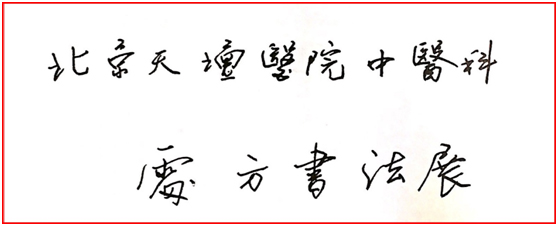 北京天壇醫院中醫科
處方書法展